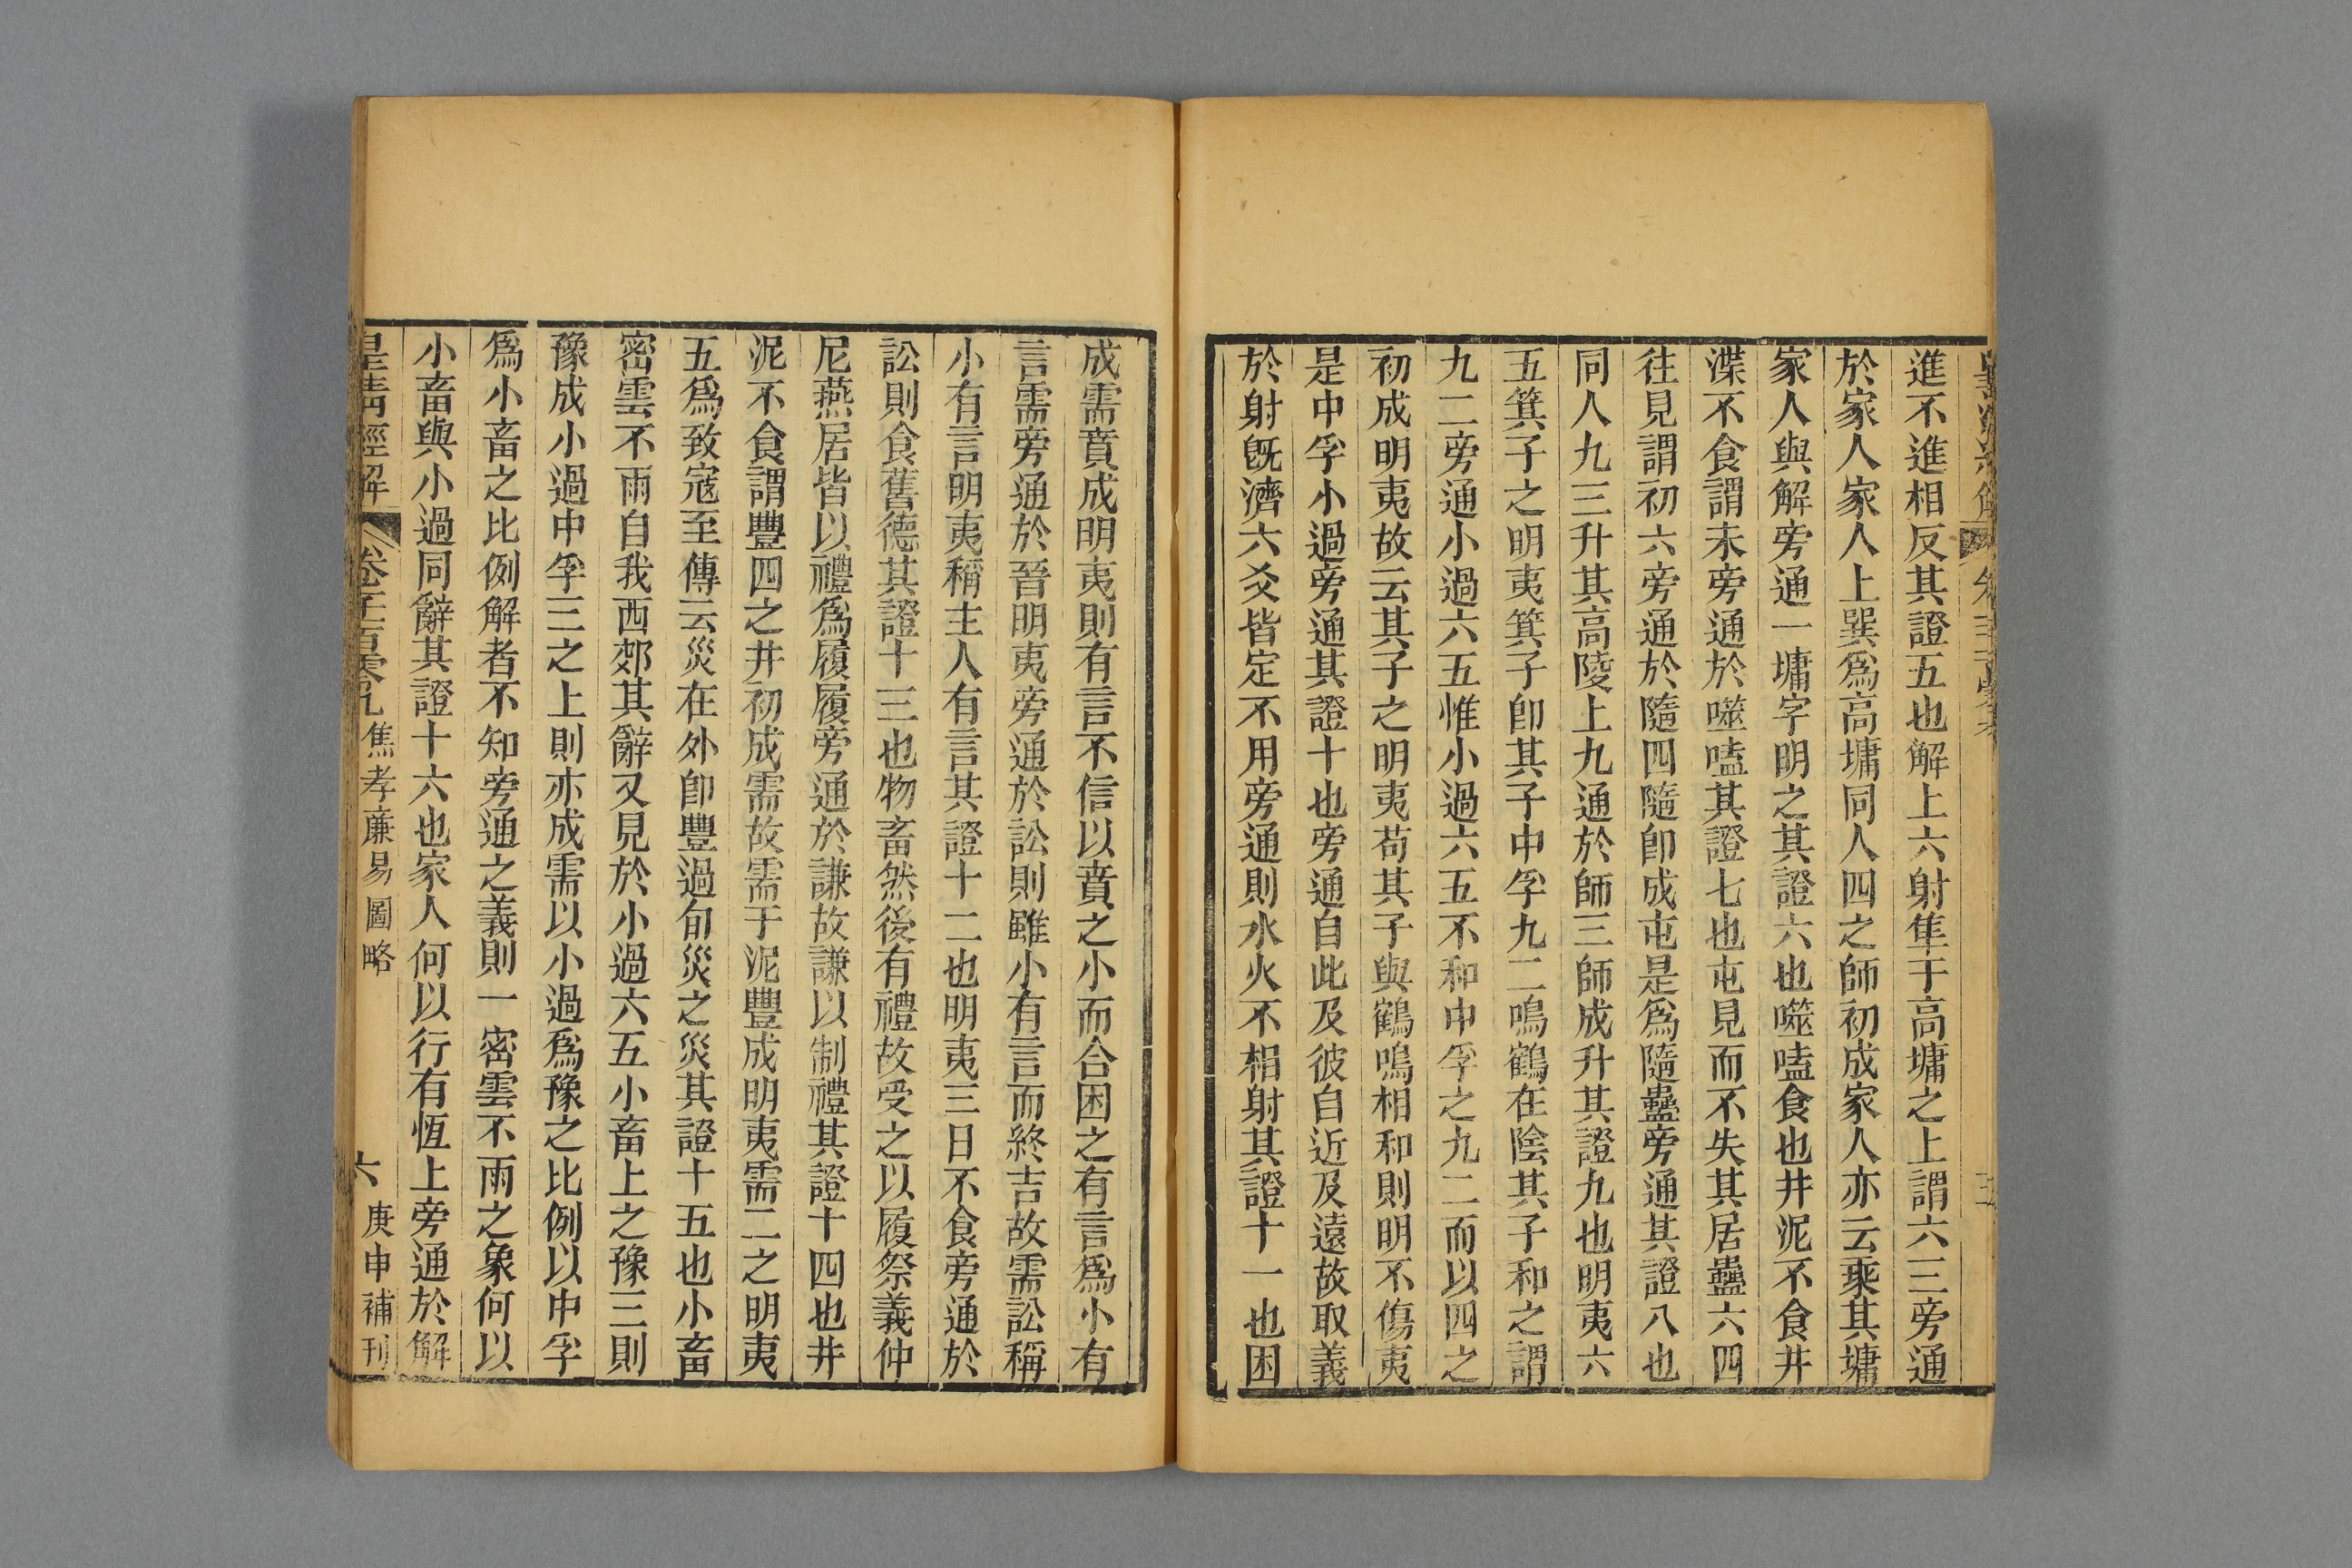 進不進相反其證五也解上六射隼于高墉之上謂六三旁通
於家人家人上巽爲高墉同人四之師初成家人亦云乘其墉
家人與解旁通一墉字明之其證六也噬嗑食也井泥不食井
渫不食謂未旁通於噬嗑其證七也屯見而不失其居蠱六四
往見謂初六旁通於隨四隨卽成屯是爲隨蠱旁通其證八也
同人九三升其高陵上九通於師三師成升其證九也明夷六
五箕子之明夷箕子卽其子中孚九二鳴鶴在陰其子和之謂
九二旁通小過六五惟小過六五不和中孚之九二而以四之
初成明夷故云其子之明夷苟其子與鶴鳴相和則明不傷夷
是中孚小過旁通其證十也旁通自此及彼自近及遠故取義
於射旣濟六爻皆定不用旁通則水火不相射其證十一也困
成需賁成明夷則有言不信以賁之小而合困之有言爲小有
言需旁通於晉明夷旁通於訟則雖小有言而終吉故需訟稱
小有言明夷稱主人有言其證十二也明夷三日不食旁通於
訟則食舊德其證十三也物畜然後有禮故受之以履祭義仲
尼燕居皆以禮爲履履旁通於謙故謙以制禮其證十四也井
泥不食謂豐四之井初成需故需于泥豐成明夷需二之明夷
五爲致寇至傳云災在外卽豐過旬災之災其證十五也小畜
密雲不雨自我西郊其辭又見於小過六五小畜上之豫三則
豫成小過中孚三之上則亦成需以小過爲豫之比例以中孚
爲小畜之比例解者不知旁通之義則一密雲不雨之象何以
小畜與小過同辭其證十六也家人何以行有恆上旁通於解
皇清經解 卷千百零九 焦孝廉易圖略 六 庚申補刊